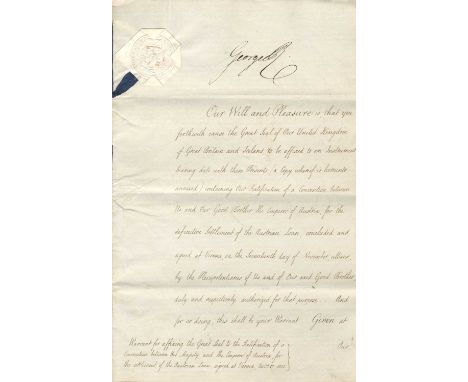 George R.
Our Will and Pleasure is that you
forthwith cause the Great Seal of Our United Kingdom
of Great Britain and Ireland to be affixed to an Instrument
bearing date with these Presents (a Copy whereof is hereunto
annexed) containing Our Ratification of a Convention between
Us and Our Good Brother the Emperor of Austria, for the
definitive Settlement of the Austrian Loan concluded and
signed at Vienna on the Seventeenth day of November
by the Plenipotentiaries of Us and of Our said Good Brother,
duly and respectively authorized for that purpose. And
for so doing, this shall be your Warrant. Given at
Our
Warrant for affixing the Great Seal to the Ratification of a
Convention between His Majesty and the Emperor of Austria, for
the settlement of the Austrian Loan signed at Vienna